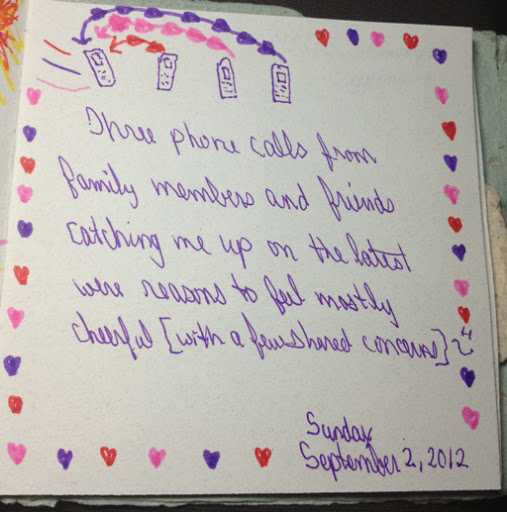 Three phone calls from
family members and friends
catching me up on the latest
were reasons to feel mostly
cheerful [with a few shared concerns]
Sunday
September 2, 2012